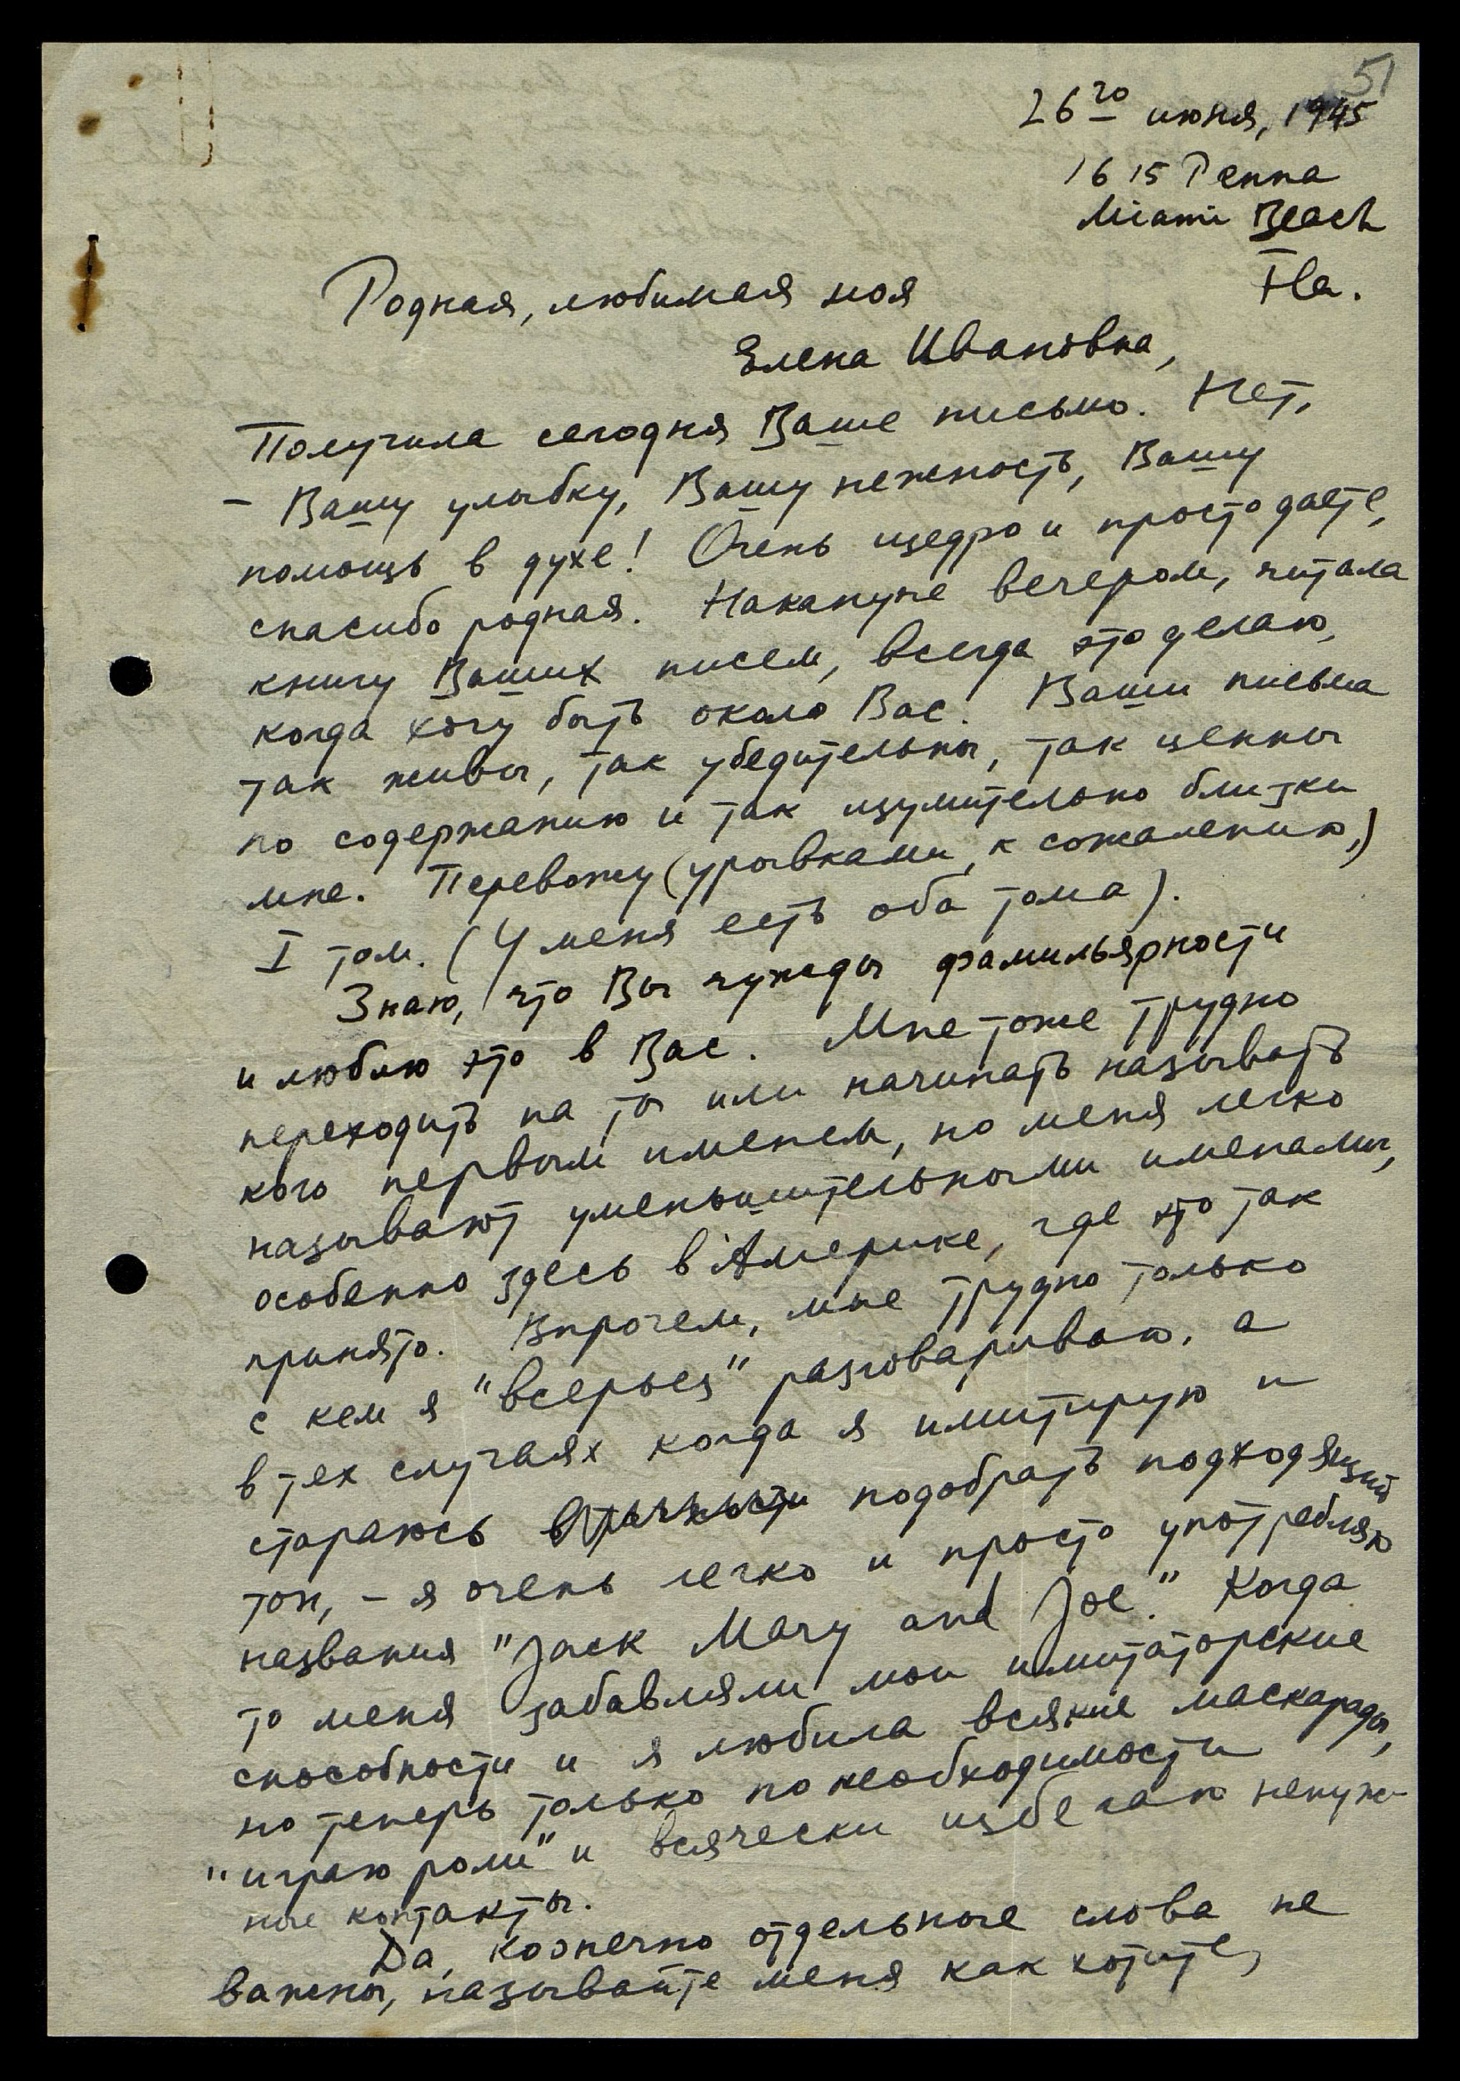 51
26го июня, 1945
1615 Penna
Miami Beach
Fla.
Родная, любимая моя
Елена Ивановна,
Получила сегодня Ваше письмо. Нет,
– Вашу улыбку, Вашу нежность, Вашу
помощь в духе! Очень щедро и просто даете,
спасибо родная. Накануне вечером, читала
книгу Ваших писем, всегда это делаю,
когда хочу быть около Вас. Ваши письма
так живы, так убедительны, так ценны
по содержанию и так изумительно близки
мне. Перевожу (урывками, к сожалению,)
I том. (У меня есть оба тома).
Знаю, что Вы чужды фамильярности
и люблю это в Вас. Мне тоже трудно
переходить на ты или начинать называть
кого первым именем, но меня легко
называют уменьшительными именами,
особенно здесь в Америке, где это так
принято. Впрочем, мне трудно только
с кем я "всерьез" разговариваю, а
в тех случаях когда я имитирую и
стараюсь подобрать подходящий
тон, – я очень легко и просто употребляю
названия "Jack Mary and Joe." Когда
то меня забавляли мои имитаторские
способности и я любила всякие маскарады,
но теперь только по необходимости
"играю роли" и всячески избегаю ненуж-
ные контакты.
Да, коонечно отдельные слова не
важны, называйте меня как хотите,